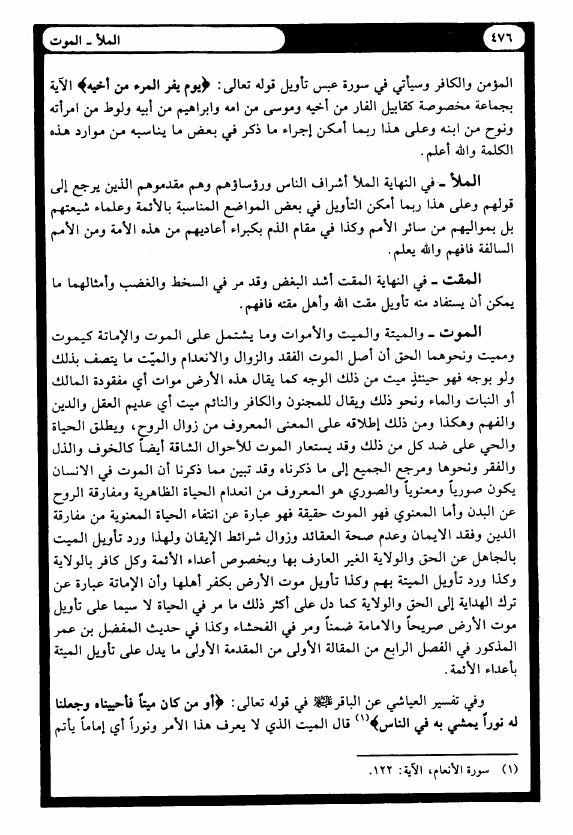 ٤٧٦
الملأ ـ الموت
المؤمن والكافر وسيأتي في سورة عبس تأويل قوله تعالى: ﴿يوم يفر المرء من أخيه﴾ الآية
بجماعة مخصوصة كقابيل الفار من أخيه وموسى من امه وابراهيم من أبيه ولوط من امرأته
ونوح من ابنه وعلى هذا ربما أمكن إجراء ما ذكر في بعض ما يناسبه من موارد هذه
الكلمة والله أعلم.
الملأ ـ في النهاية الملأ أشراف الناس ورؤساؤهم وهم مقدموهم الذين يرجع إلى
قولهم وعلى هذا ربما أمكن التأويل في بعض المواضع المناسبة بالأئمة وعلماء شيعتهم
بل بمواليهم من سائر الأمم وكذا في مقام الذم بكبراء أعاديهم من هذه الأمة ومن الأمم
السالفة فافهم والله يعلم.
المقت ـ في النهاية المقت أشد البغض وقد مر في السخط والغضب وأمثالهما ما
يمكن أن يستفاد منه تأويل مقت الله وأهل مقته فافهم.
الموت ـ والميتة والميت والأموات وما يشتمل على الموت والإماتة كيموت
ومميت ونحوهما الحق أن أصل الموت الفقد والزوال والانعدام والميّت ما يتصف بذلك
ولو بوجه فهو حينئذٍ ميت من ذلك الوجه كما يقال هذه الأرض موات أي مفقودة المالك
أو النبات والماء ونحو ذلك ويقال للمجنون والكافر والنائم ميت أي عديم العقل والدين
والفهم وهكذا ومن ذلك إطلاقه على المعنى المعروف من زوال الروح، ويطلق الحياة
والحي على ضد كل من ذلك وقد يستعار الموت للأحوال الشاقة أيضاً كالخوف والذل
والفقر ونحوها ومرجع الجميع إلى ما ذكرناه وقد تبين مما ذكرنا أن الموت في الانسان
يكون صورياً ومعنوياً والصوري هو المعروف من انعدام الحياة الظاهرية ومفارقة الروح
عن البدن وأما المعنوي فهو الموت حقيقة فهو عبارة عن انتفاء الحياة المعنوية من مفارقة
الدين وفقد الايمان وعدم صحة العقائد وزوال شرائط الإيقان ولهذا ورد تأويل الميت
بالجاهل عن الحق والولاية الغير العارف بها وبخصوص أعداء الأئمة وكل كافر بالولاية
وكذا ورد تأويل الميتة بهم وكذا تأويل موت الأرض بكفر أهلها وأن الإماتة عبارة عن
ترك الهداية إلى الحق والولاية كما دل على أكثر ذلك ما مر في الحياة لا سيما على تأويل
موت الأرض صريحاً والامامة ضمناً ومر في الفحشاء وكذا في حديث المفضل بن عمر
المذكور في الفصل الرابع من المقالة الأولى من المقدمة الأولى ما يدل على تأويل الميتة
بأعداء الأئمة.
وفي تفسير العياشي عن الباقر في قوله تعالى: ﴿أو من كان ميتاً فأحييناه وجعلنا
له نوراً يمشي به في الناس﴾(١) قال الميت الذي لا يعرف هذا الأمر ونوراً أي إماماً يأتم
(١) سورة الأنعام، الآية: ١٢٢.